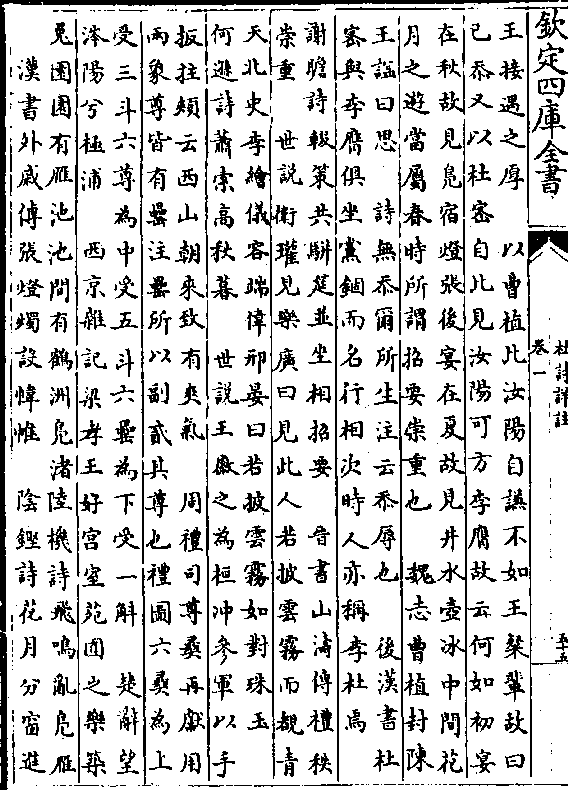 欽定四庫全書
杜詩詳註
卷一
五十五
王接遇之厚　以曹植比汝陽自謙不如王粲輩故曰
已忝又以杜密自比見汝陽可方李膺故云何如初宴
在秋故見鳧宿燈張後宴在夏故見井水壺冰中間花
月之遊當屬春時所謂招要崇重也　魏志曹植封陳
王諡曰思　詩無忝爾所生注云忝辱也　後漢書杜
密與李膺俱坐黨錮而名行相次時人亦稱李杜焉
謝瞻詩輟策共駢筵並坐相招要　晉書山濤傳禮秩
崇重　世説衛瓘見樂廣曰見此人若披雲霧而覩青
天北史李繪儀容端偉邢晏曰若披雲霧如對珠玉
何遜詩蕭索高秋暮　世説王徽之為桓冲參軍以手
扳拄頰云西山朝來致有爽氣　周禮司尊彝再獻用
兩象尊皆有罍注罍所以副貳其尊也禮圖六彝為上
受三斗六尊為中受五斗六罍為下受一斛　楚辭望
涔陽兮極浦　西京雜記梁孝王好宮室苑囿之樂築
兎園園有雁池池間有鶴洲鳧渚陸機詩飛鳴亂鳧雁
漢書外戚傳張燈燭設幃帷　陰鏗詩花月分窗進